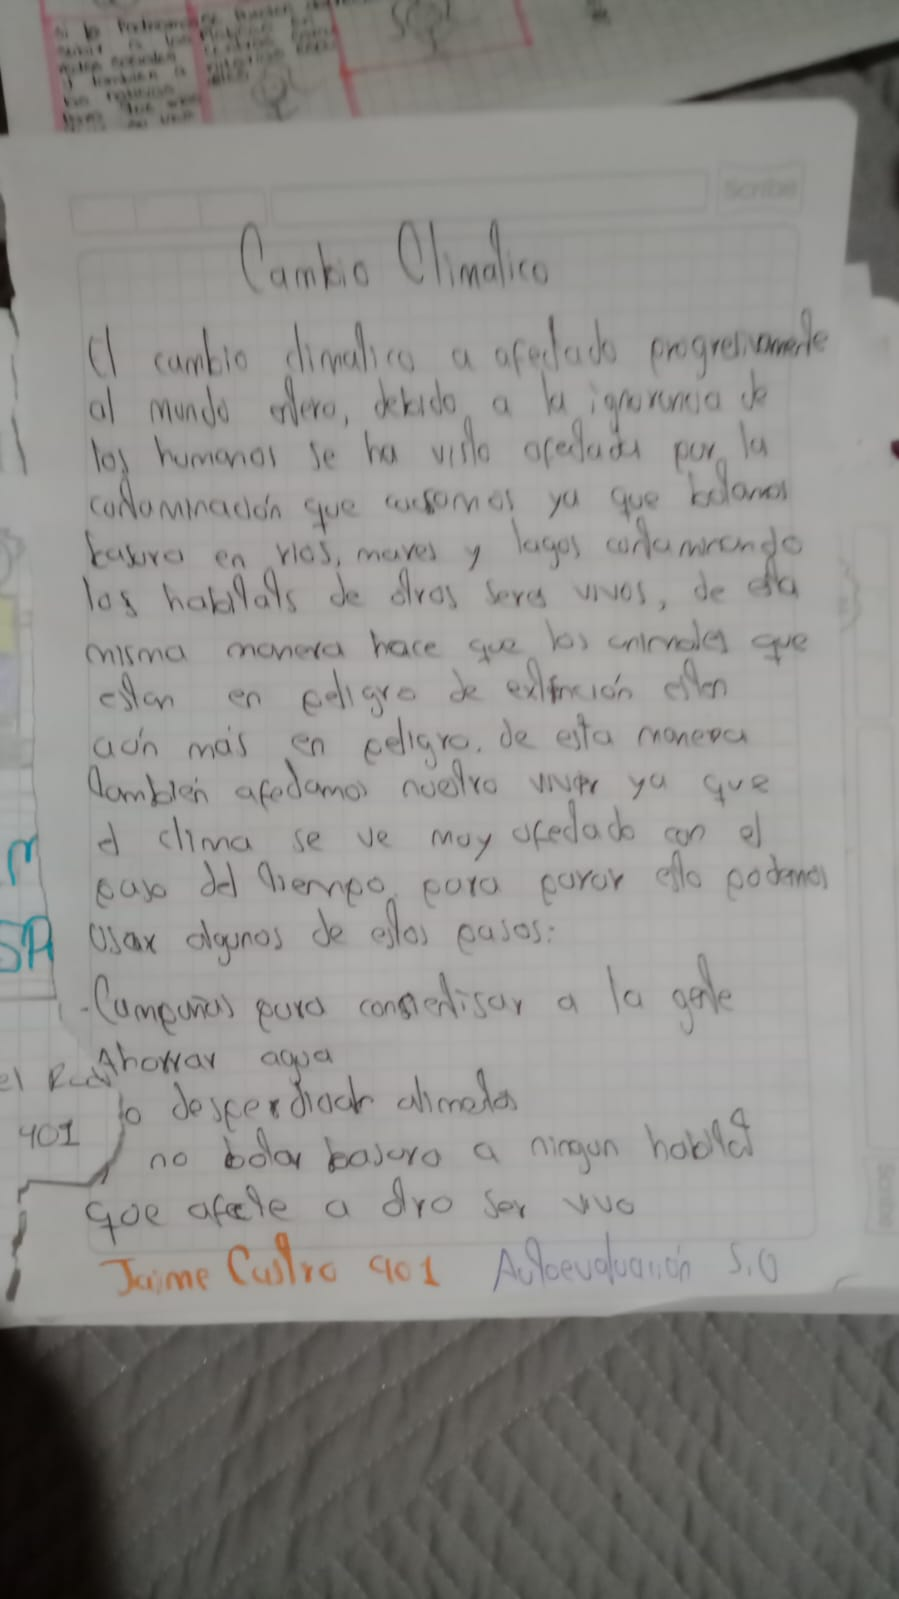 Scribe
Cambio Climatico
El cambio climatico a afectado progresivamente
al mundo entero, debido a la ignorancia de
los humanos se ha visto afectada por la
contaminación que causamos ya que botamos
basura en rios, mares y lagos contaminando
los habitats de otros seres vivos, de esta
misma manera hace que los animales que
estan en peligro de extinción esten
aún más en peligro. de esta manera
también afectamos nuestro vivir ya que
el clima se ve muy afectado con el
paso del tiempo para parar esto podemos
usar algunos de estos pasos:
-Campañas para consientisar a la gente
Ahorrar agua
desperdiciar alimentos
no botar basura a ningun habitat
que afecte a otro ser vivo
Jaime Castro 901 Autoevaluación 5.0
M
SA
el
401